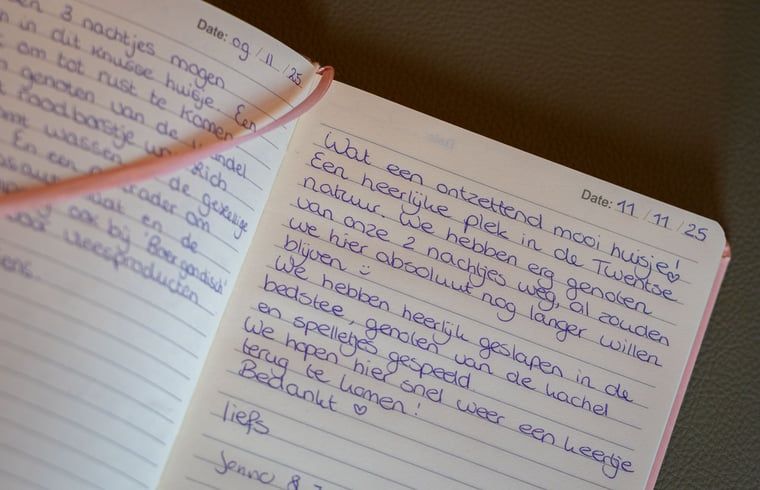 Date: 09/11/25
3 nachtjes mogen
in dit knusse huisje. En
om tot rust te komen
genoten van de
roodborstje
wassen
En een
de gezellige
en de
ook bij 'Boergondisch'
voor vleesproducten
Date: 11/11/25
Wat een ontzettend mooi huisje! ♡
Een heerlijke plek in de Twentse
natuur. We hebben erg genoten
van onze 2 nachtjes weg, al zouden
we hier absoluut nog langer willen
blijven :)
We hebben heerlijk geslapen in de
bedstee, genoten van de kachel
en spelletjes gespeeld
We hopen hier snel weer een keertje
terug te komen!
Bedankt ♡
liefs
&